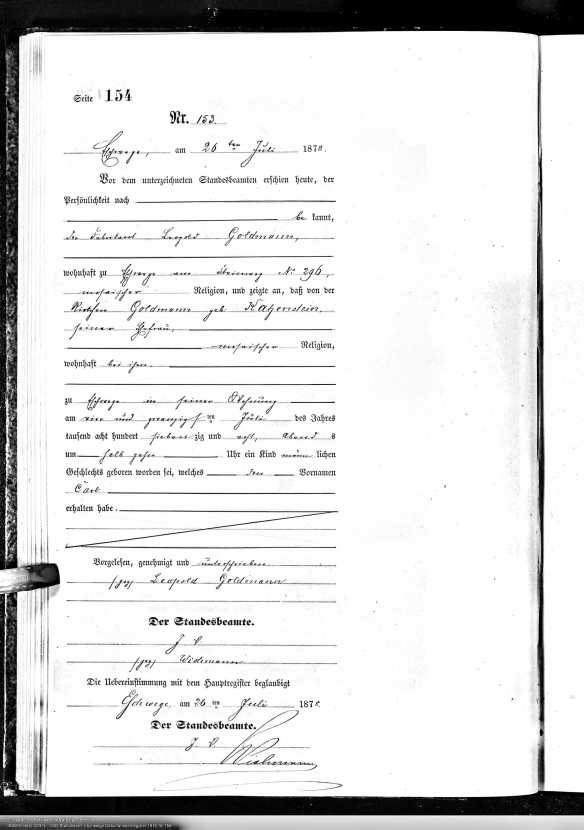 Seite 154
Nr. 153.
Eschwege, am 26 ten Juli 1878.
Vor dem unterzeichneten Standesbeamten erschien heute, der
Persönlichkeit nach
be kannt,
der Fabrikant Leopold Goldmann,
wohnhaft zu Eschwege am Steinweg No 296,
mosaischer Religion, und zeigte an, daß von der
Goldmann geb Katzenstein,
seiner Ehefrau,
mosaischer Religion,
wohnhaft bei ihm.
zu Eschwege in seiner Wohnung
am ein und zwanzigsten Juli des Jahres
tausend acht hundert sieben zig und acht, Abends
um halb zehn Uhr ein Kind männ lichen
Geschlechts geboren worden sei, welches den Vornamen
Carl
erhalten habe.
Vorgelesen, genehmigt und unterschrieben
(gez) Leopold Goldmann
Der Standesbeamte.
J. V.
(gez) Widemann
Die Uebereinstimmung mit dem Hauptregister beglaubigt
Eschwege, am 26 ten Juli 1878.
Der Standesbeamte.
J. V.